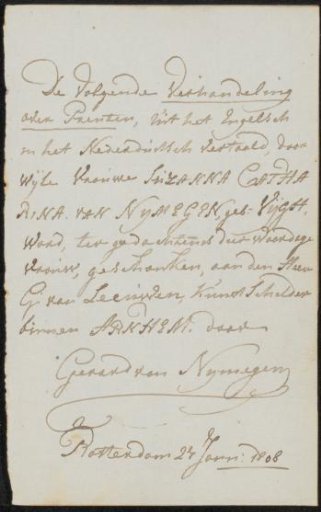 De Volgende Verhandeling
over Prenten, uit het Engelsch
in het Nederduitsch vertaald door
wyle Vrouwe SUZANNA CATHA
RINA VAN NYMEGEN, geb:
Word, ter gedachtenis dier waardige
vrouw, geschonken, aan den Heer
G. van Leeuwen, Kunst Schilder
binnen ARNHEM. door
Gerard van Nymegen
Rotterdam 24 Janu: 1808